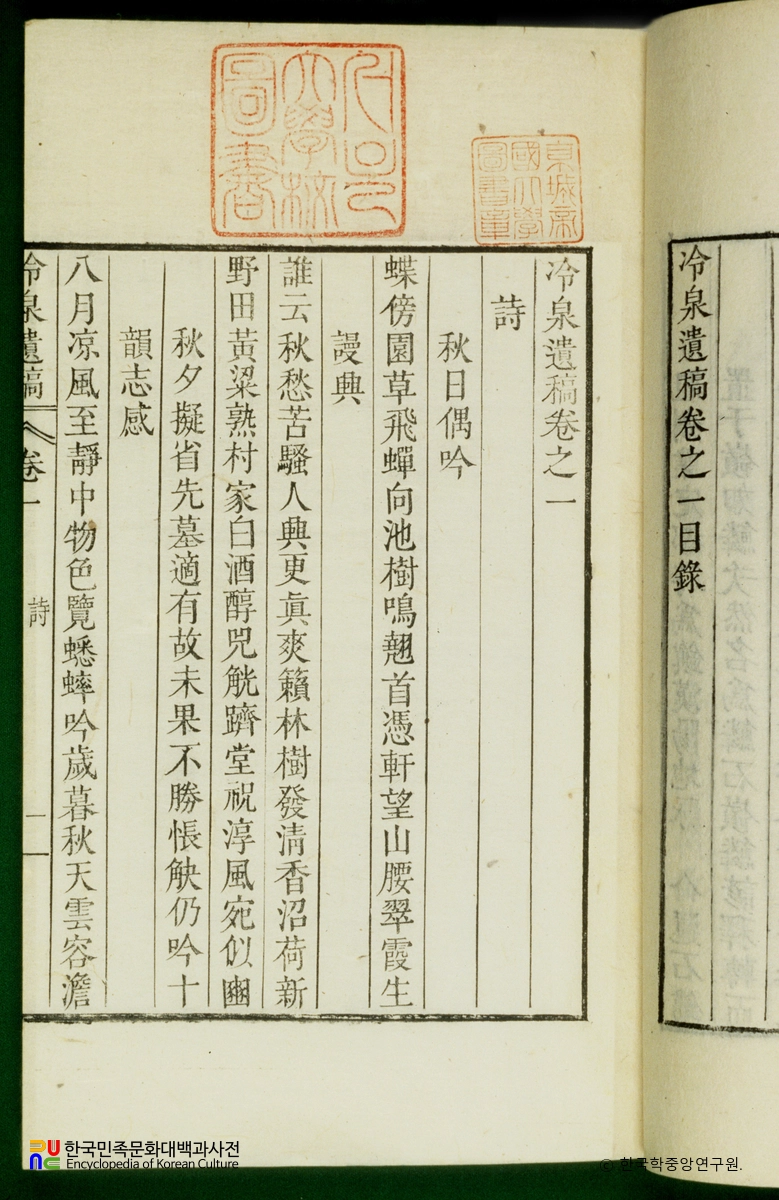 冷泉遺稿卷之一目錄
冷泉遺稿卷之一
詩
秋日偶吟
蝶傍園草飛蟬向池樹鳴翹首憑軒望山腰翠霞生
謾興
誰云秋愁苦騷人興更眞爽籟林樹發淸香沼荷新
野田黃粱熟村家白酒醇兕觥躋堂祝淳風宛似豳
秋夕擬省先墓適有故未果不勝悵觖仍吟十
韻志感
八月凉風至靜中物色覽蟋蟀吟歲暮秋天雲容澹
冷泉遺稿
卷一
詩
一
京城帝
國大學
圖書章
서울
大學校
圖書
한국민족문화대백과사전
Encyclopedia of Korean Culture
ⓒ 한국학중앙연구원.